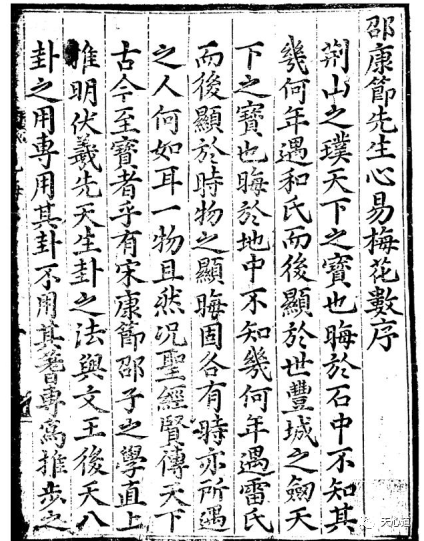 邵康節先生心易梅花數序
荆山之璞天下之寶也晦於石中不知其
幾何年遇和氏而後顯於世豐城之劔天
下之寶也晦於地中不知幾何年遇雷氏
而後顯於時物之顯晦固各有時亦所遇
之人何如耳一物且然况聖經賢傳天下
古今至寶者乎有宋康節邵子之學直上
推明伏羲先天生卦之法與文王後天八
卦之用專用其卦不用其蓍專寫推步之
天心道